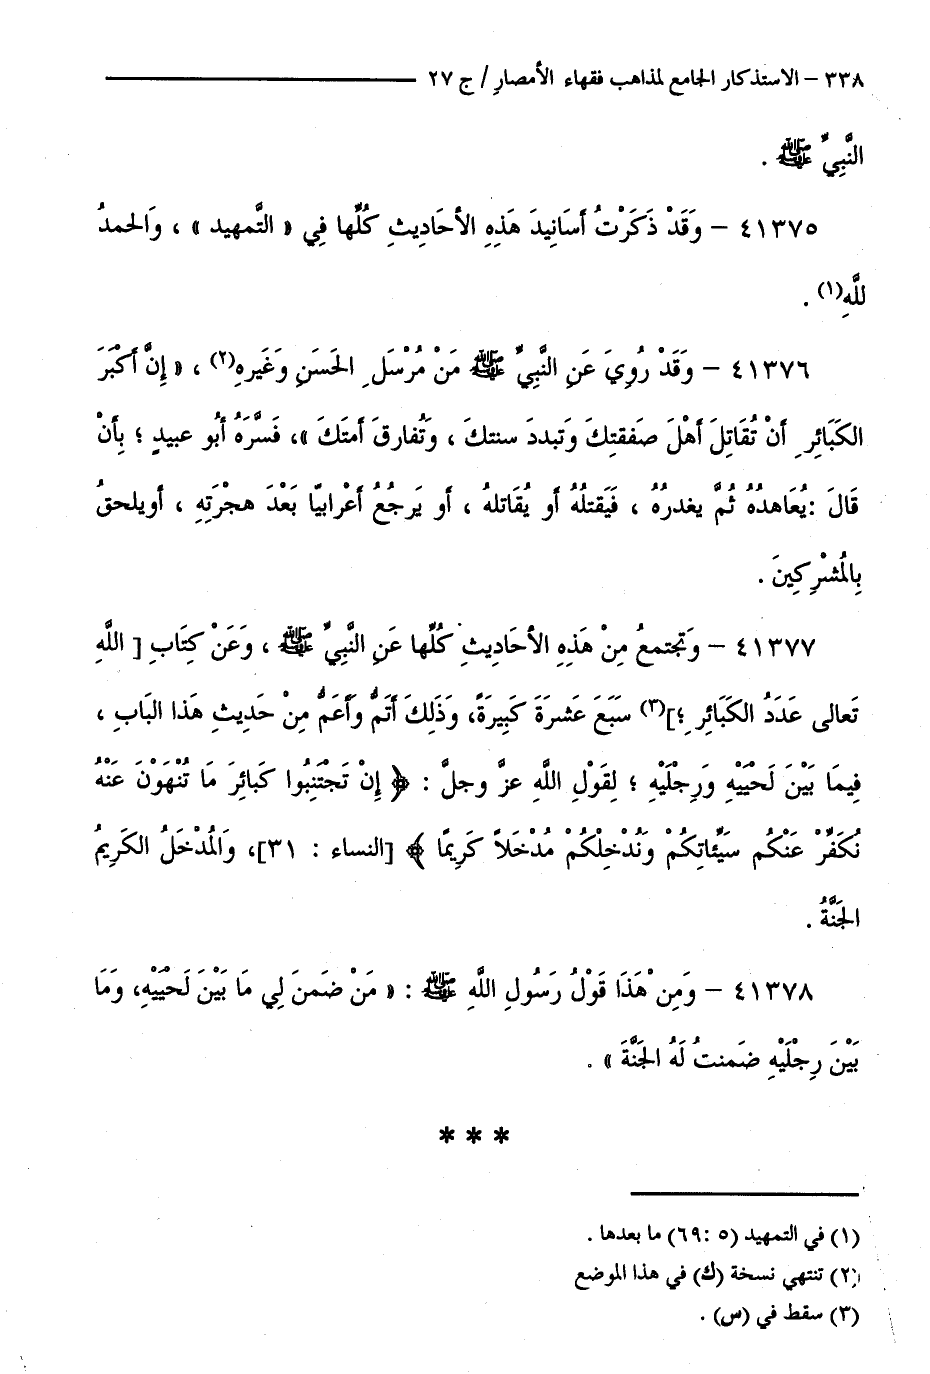 ٣٣٨ – الاستذكار الجامع لمذاهب فقهاء الأمصار / ج ٢٧
النَّبِيِّ ﷺ .
٤١٣٧٥ – وَقَدْ ذَكَرْتُ أَسَانِيدَ هَذِهِ الأحَادِيثِ كُلِّها فِي « التَّمهيد » ، وَالحمدُ
للَّهِ(١) .
٤١٣٧٦ – وَقَدْ رُوِيَ عَنِ النَّبِيِّ ﷺ مَنْ مُرْسَلِ الحَسَنِ وَغَيرهِ(٢) ، « إِنَّ أَكْبَرَ
الكَبَائِرِ أَنْ تُقَاتِلَ أَهْلَ صَفَقتِكَ وَتبددَ سنتكَ ، وَتُفارقَ أمتَكَ »، فَسَّرَهُ أَبُو عبيدٍ ؛ بِأَنْ
قَالَ :يُعَاهدُهُ ثُمَّ يغدرُهُ ، فَيَقتلُهُ أو يُقَاتلهُ ، أو يَرجُعُ أَعْرابيًّا بَعْدَ هجْرَتِهِ ، أويلحقُ
بِالمُشْرِكِينَ .
٤١٣٧٧ – وَتجتمعُ مِنْ هَذِهِ الأحَاديثِ كُلِّها عَنِ النَّبِيِّ ﷺ ، وَعَنْ كِتَابِ [ اللَّهِ
تَعالى عَدَدُ الكَبَائِرِ ؛](٣) سَبَعَ عَشرَةَ كَبِيرَةً، وَذَلِكَ أَتَمُّ وأَعَمُّ مِنْ حَديثِ هَذا البَابِ ،
فِيمَا بَيْنَ لَحْيَيْهِ وَرِجْلَيْهِ ؛ لِقَوْلِ اللَّهِ عزَّ وجلَّ : ﴿ إِنْ تَجْتَنِبُوا كَبائِرَ مَا تُنْهَوْنَ عَنْهُ
نُكَفِّرْ عَنْكُم سَيِّئاتِكُمْ وَنُدْخِلْكُمْ مُدْخَلاً كَرِيمًا ﴾ [النساء : ٣١]، وَالمُدْخَلُ الكَرِيمُ
الجَنَّةُ .
٤١٣٧٨ – وَمِنْ هَذَا قَوْلُ رَسُولِ اللَّهِ ﷺ : « مَنْ ضَمنَ لِي مَا بَيْنَ لَحْيَيْهِ، وَمَا
بَيْنَ رِجْلَيْهِ ضَمنتُ لَهُ الجَنَّةَ » .
* * *
(١) في التمهيد (٥ :٦٩) ما بعدها .
(٢) تنتهي نسخة (ك) في هذا الموضع
(٣) سقط في (س) .